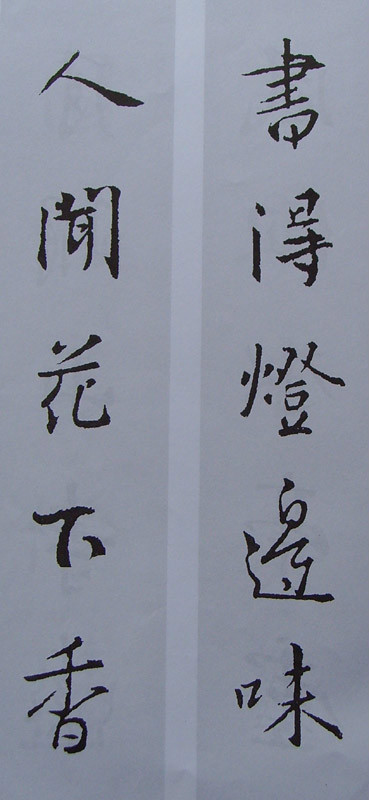 書得燈邊味
人聞花下香